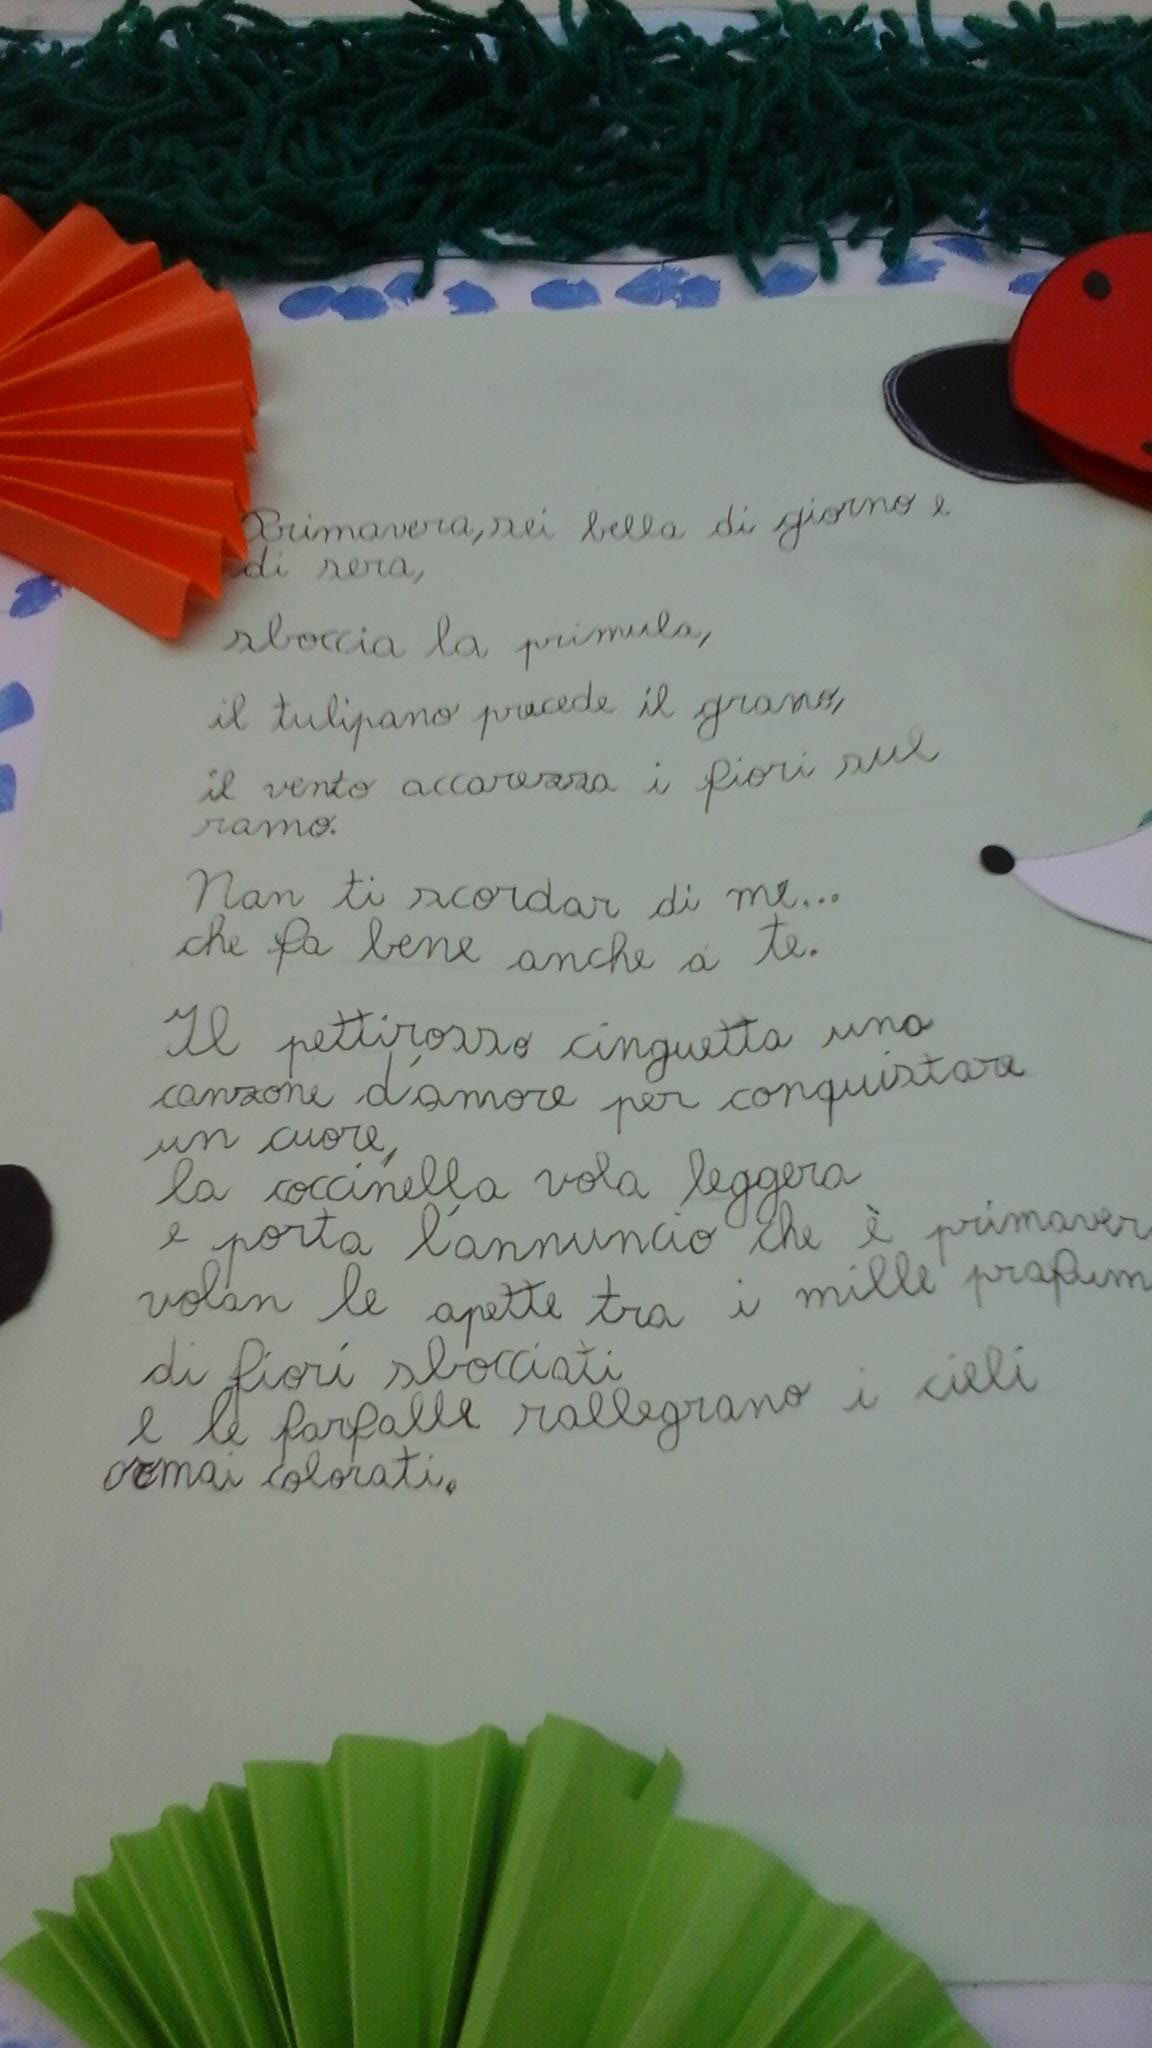 Primavera, sei bella di giorno e
di sera,
sboccia la primula,
il tulipano precede il grano,
il vento accarezza i fiori sul
ramo.
Non ti scordar di me...
che fa bene anche a te.
Il pettirosso cinguetta una
canzone d'amore per conquistare
un cuore,
la coccinella vola leggera
e porta l'annuncio che è primaver
volan le apette tra i mille profum
di fiori sbocciati
e le farfalle rallegrano i cieli
ormai colorati.